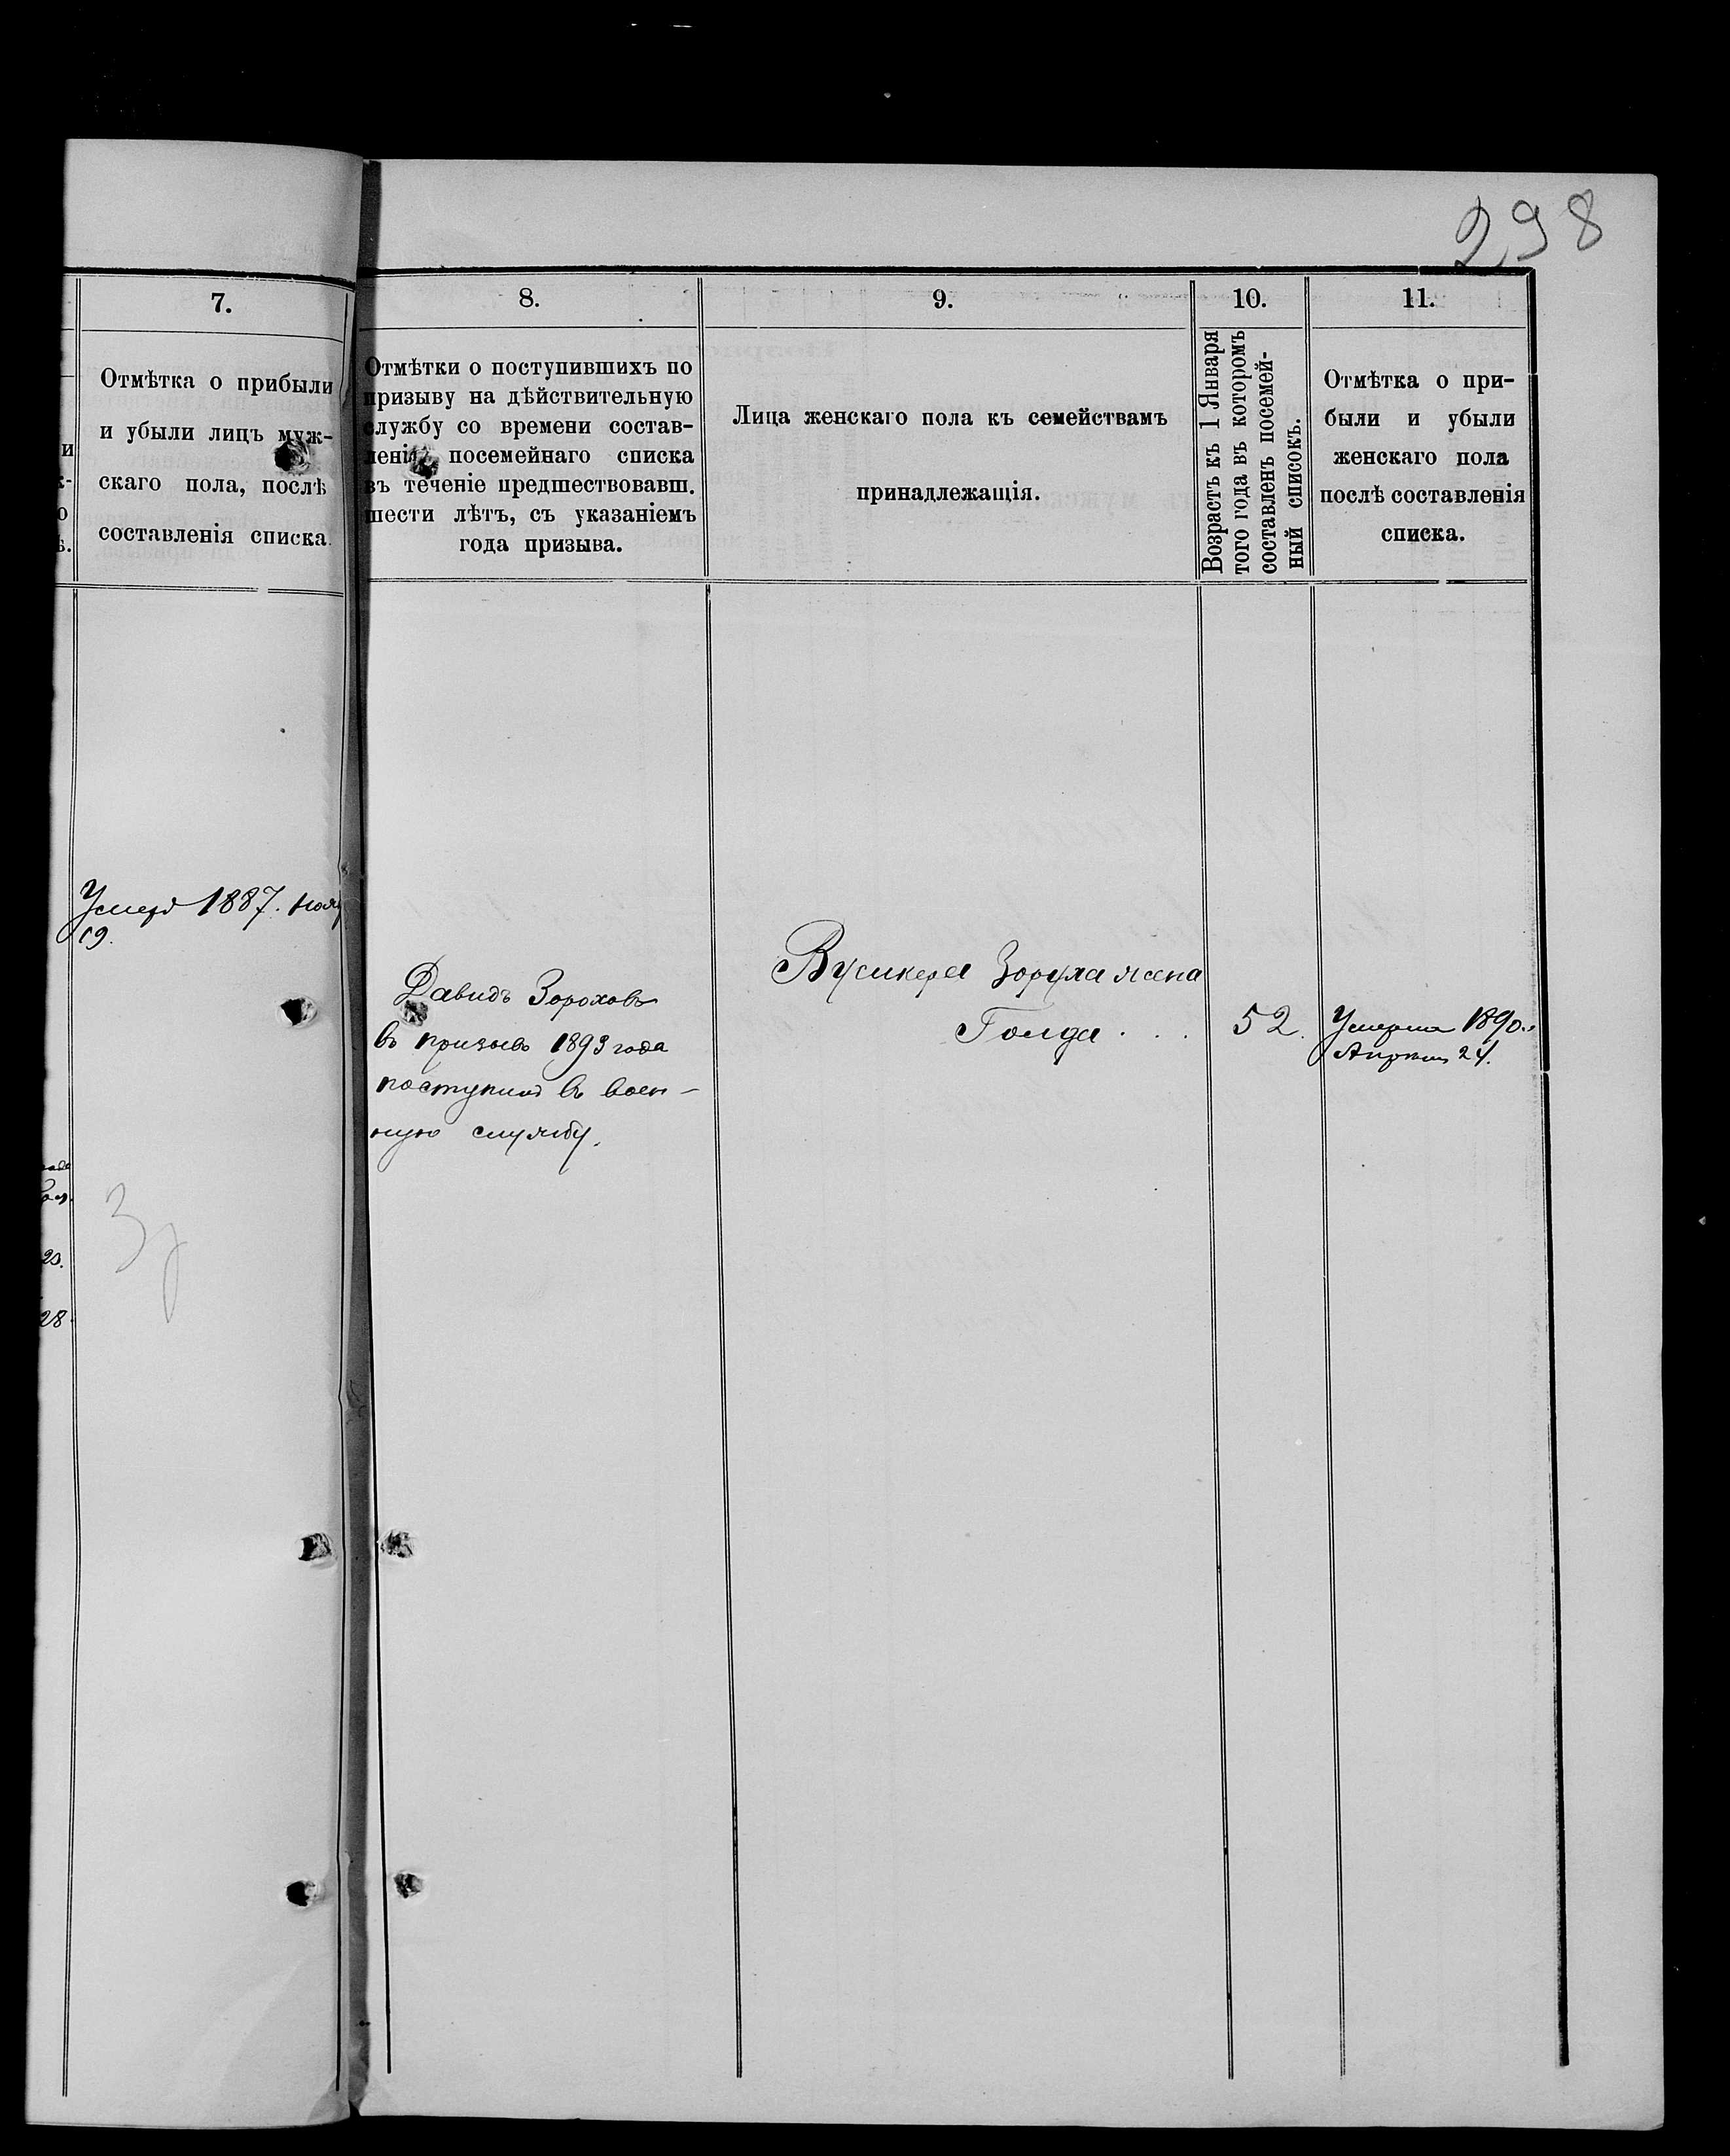 298
7.
Отмѣтка о прибыли
и убыли лицъ муж-
скаго пола, послѣ
составленія списка.
Умеръ 1887. Нояб
19.
20.
28.
8.
Отмѣтки о поступившихъ по
призыву на дѣйствительную
службу со времени состав-
ленія посемейнаго списка
въ теченіе предшествовавш.
шести лѣтъ, съ указаніемъ
года призыва.
Давидъ Зороховъ
въ призывъ 1893 года
поступилъ въ воен-
ную службу.
9.
Лица женскаго пола къ семействамъ
принадлежащія.
Вусикера Зоруха жена
Голда . . .
10.
Возрастъ къ 1 Января
того года въ которомъ
составленъ посемей-
ный списокъ.
52.
11.
Отмѣтка о при-
были и убыли
женскаго пола
послѣ составленія
списка.
Умерла 1890.
Апрѣля 24.